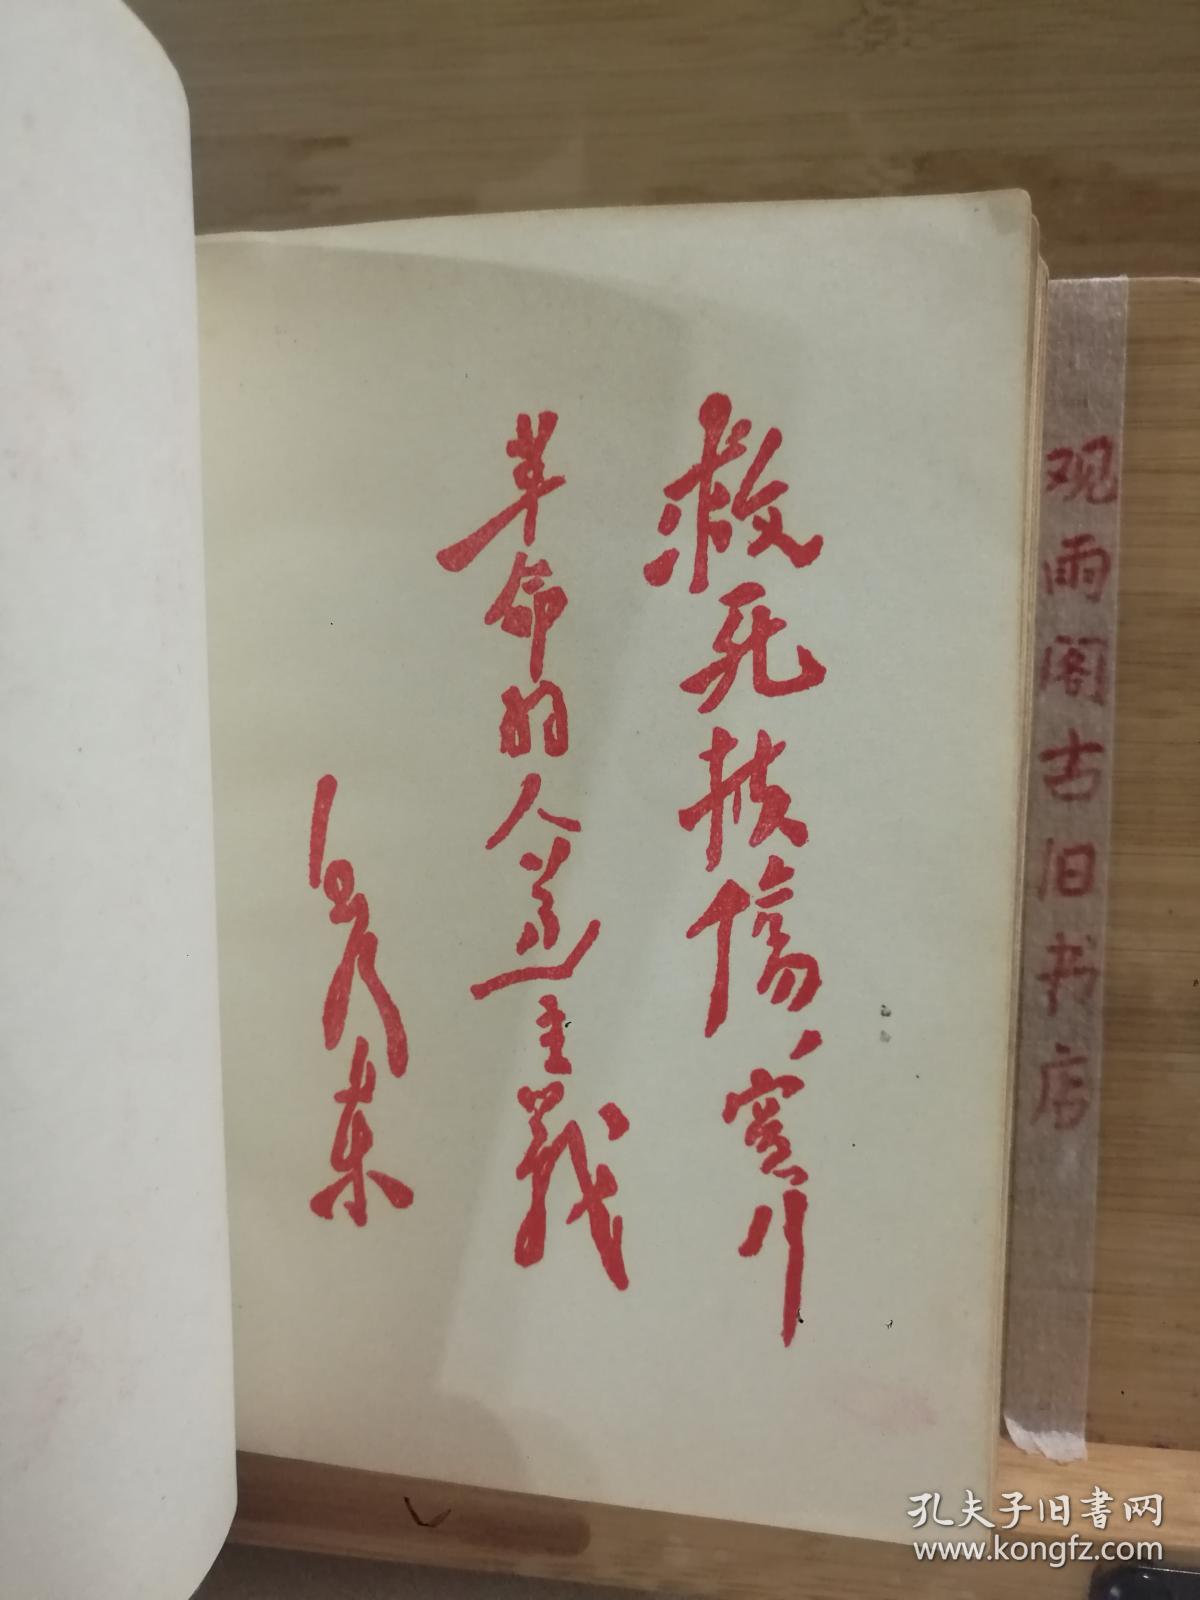 救死扶傷、实行
革命的人道主義
毛泽东
观雨阁古旧书店
孔夫子旧書网
www.kongfz.com